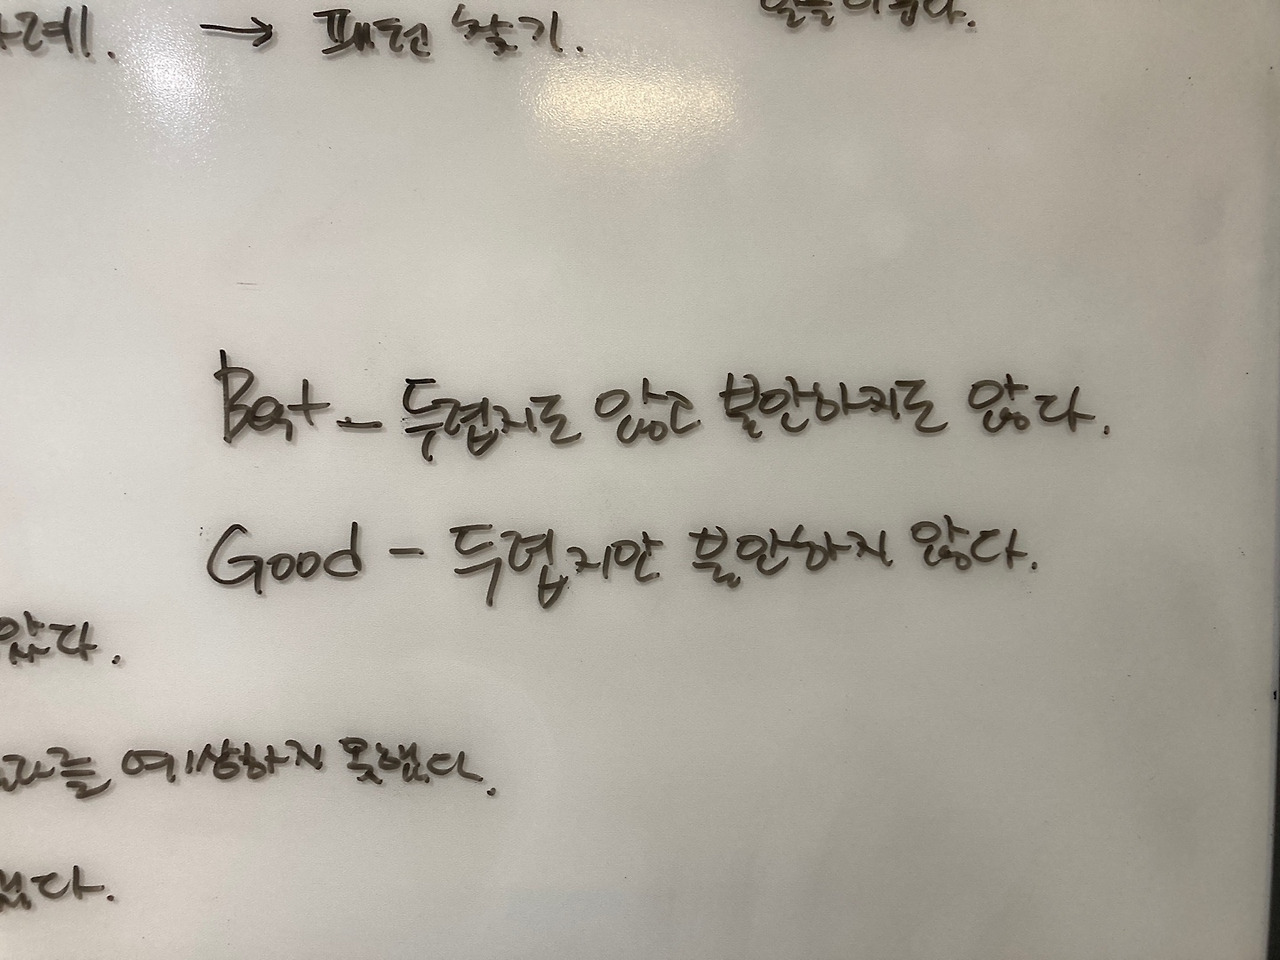 → 패턴 찾기.
Best - 두렵지도 않고 불안하지도 않다.
Good - 두렵지만 불안하지 않다.
았다.
예상하지 못했다.